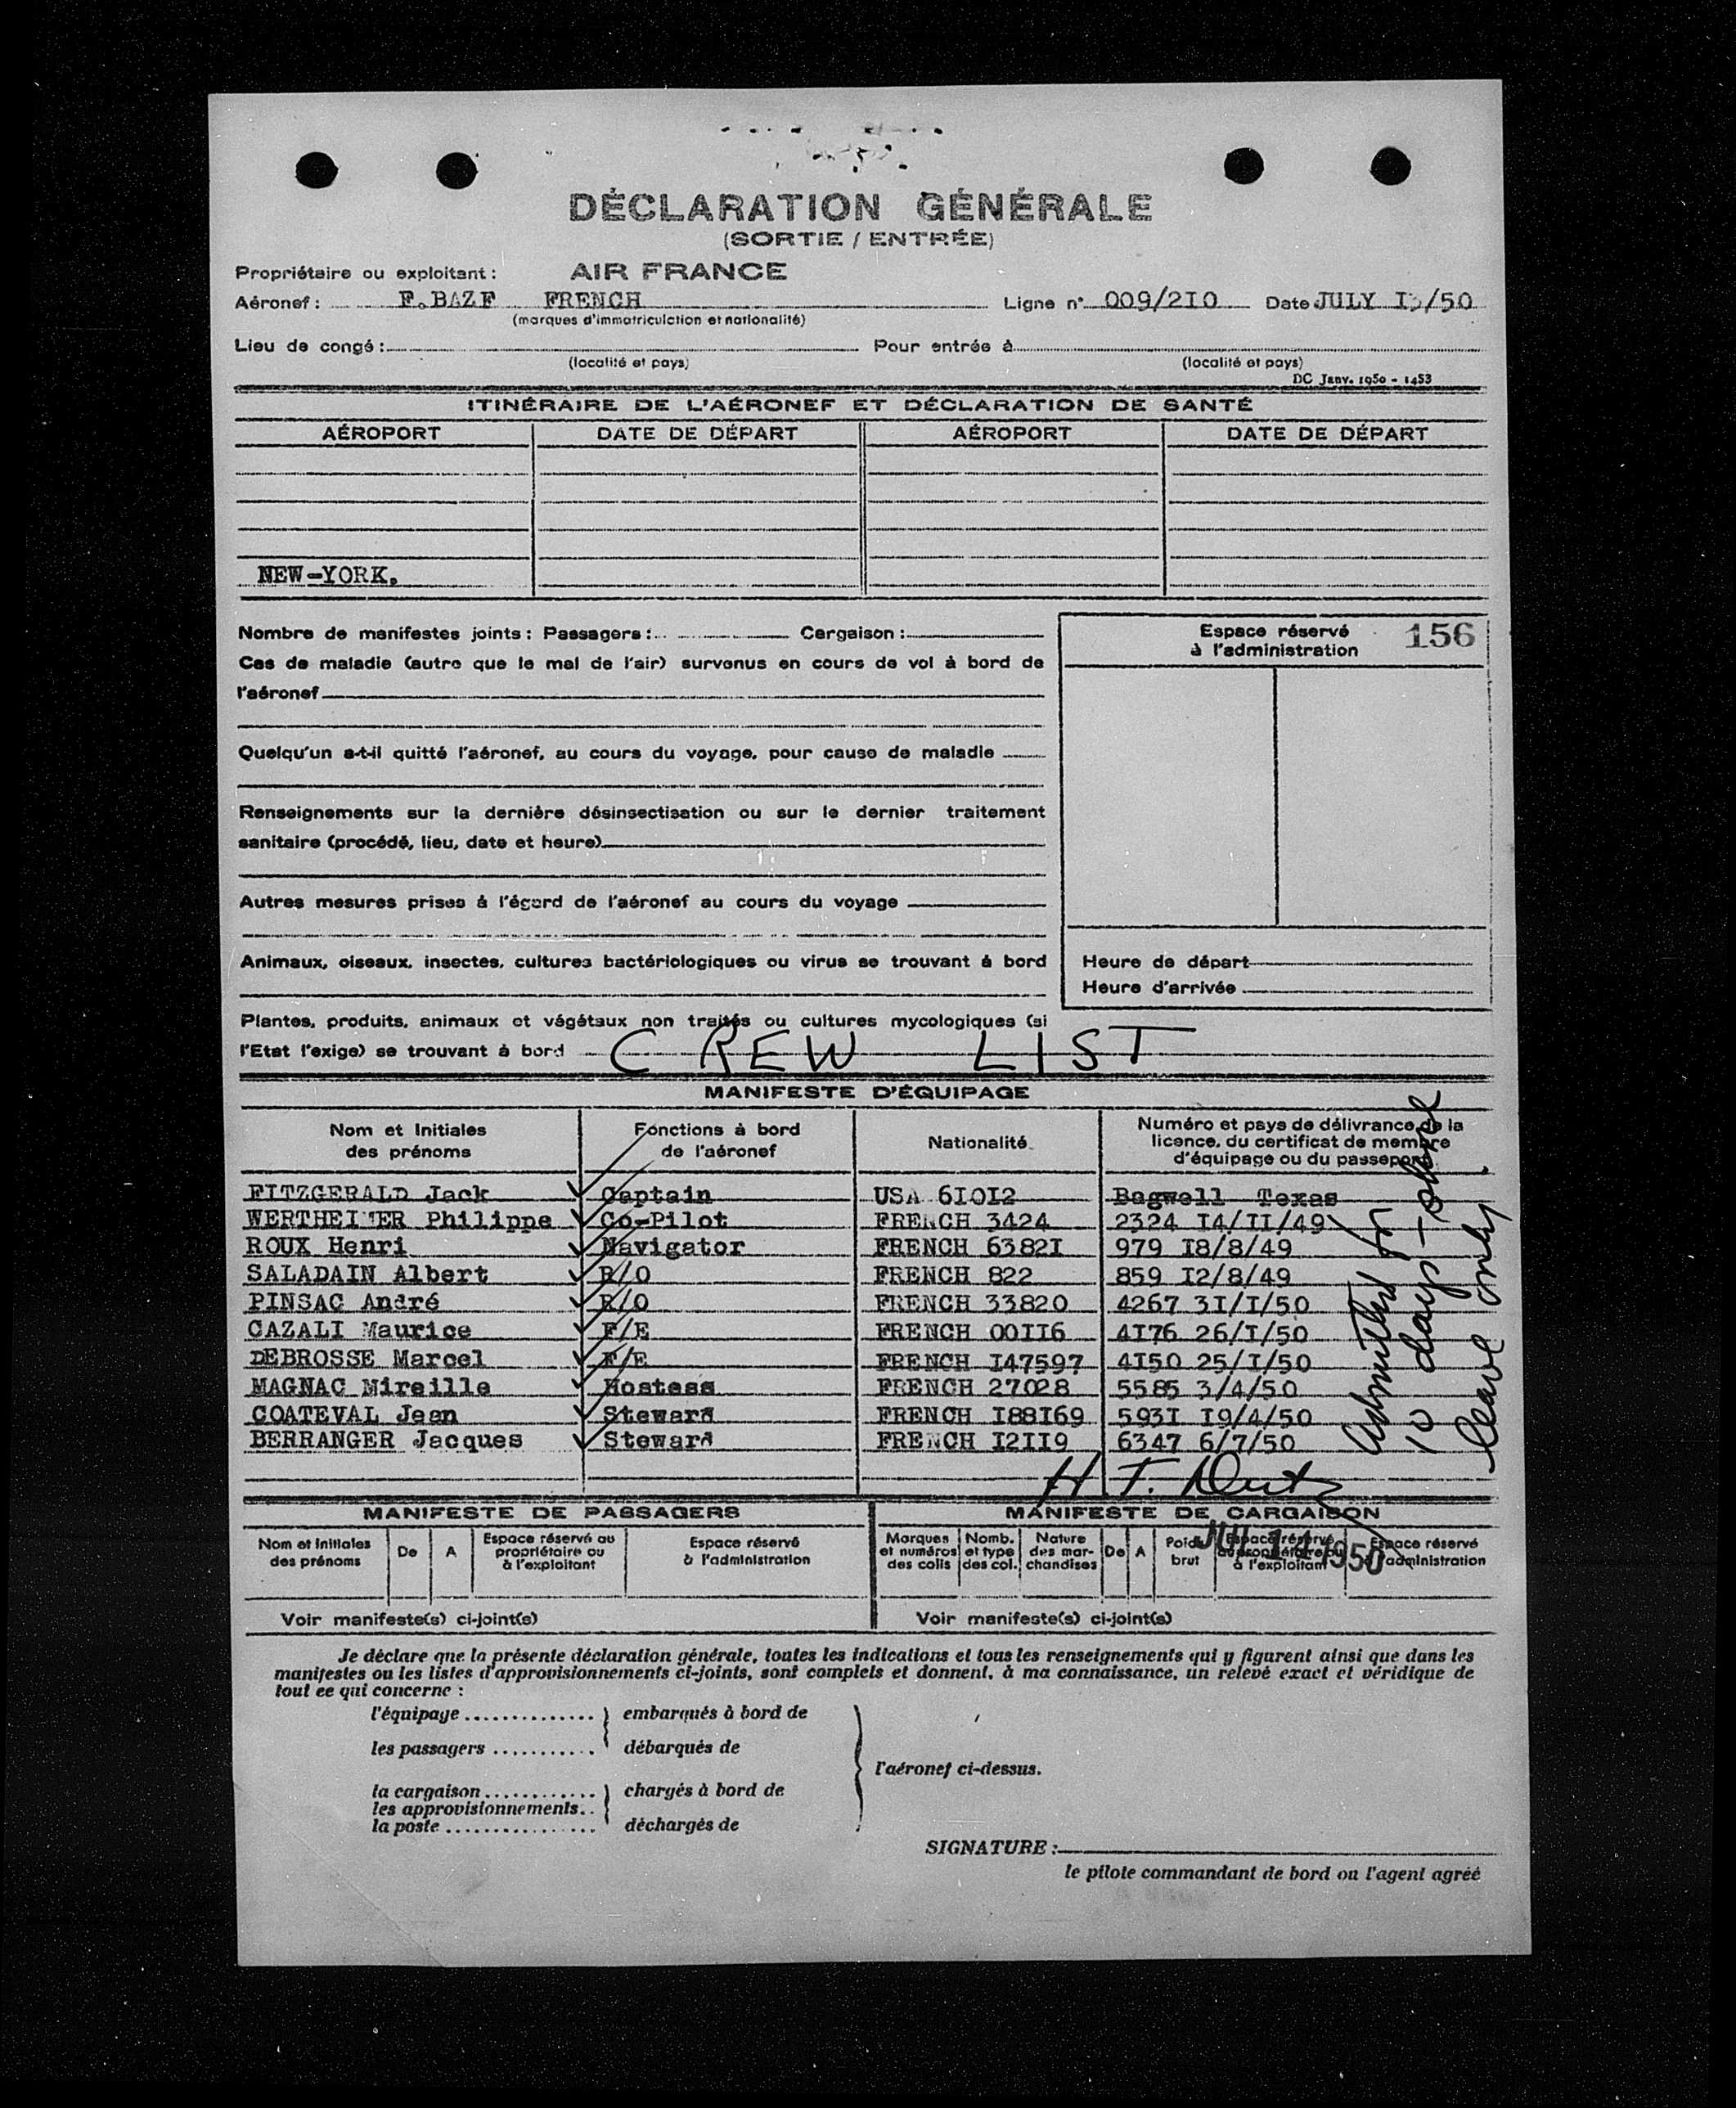 DÉCLARATION GÉNÉRALE
(SORTIE / ENTRÉE)
Propriétaire ou exploitant : AIR FRANCE
Aéronef : F.BAZF FRENCH Ligne n° 009/2I0 Date JULY /50
(marques d'immatriculction et nationalité)
Lieu de congé : Pour entrée à
(localité et pays) (localité et pays)
DC Janv. 1950 - 1453
ITINÉRAIRE DE L'AÉRONEF ET DÉCLARATION DE SANTÉ
AÉROPORT DATE DE DÉPART AÉROPORT DATE DE DÉPART
NEW-YORK.
Nombre de manifestes joints : Passagers : Cargaison :
Cas de maladie (autre que le mal de l'air) survenus en cours de vol à bord de
l'aéronef
Quelqu'un a-t-il quitté l'aéronef, au cours du voyage, pour cause de maladie
Renseignements sur la dernière désinsectisation ou sur le dernier traitement
sanitaire (procédé, lieu, date et heure)
Autres mesures prises à l'égard de l'aéronef au cours du voyage
Animaux, oiseaux, insectes, cultures bactériologiques ou virus se trouvant à bord
Plantes, produits, animaux et végétaux non traités ou cultures mycologiques (si
l'Etat l'exige) se trouvant à bord CREW LIST
Espace réservé 156
à l'administration
Heure de départ
Heure d'arrivée
MANIFESTE D'ÉQUIPAGE
Nom et Initiales des prénoms Fonctions à bord de l'aéronef Nationalité Numéro et pays de délivrance de la licence, du certificat de membre d'équipage ou du passeport
FITZGERALD Jack Captain USA 6I0I2 Bagwell Texas
WERTHEIMER Philippe Co-Pilot FRENCH 3424 2324 I4/II/49
ROUX Henri Navigator FRENCH 6382I 979 I8/8/49
SALADAIN Albert R/O FRENCH 822 859 I2/8/49
PINSAC André R/O FRENCH 33820 4267 3I/I/50
CAZALI Maurice F/E FRENCH 00II6 4I76 26/I/50
DEBROSSE Marcel F/E FRENCH I47597 4I50 25/I/50
MAGNAC Mireille Hostess FRENCH 27028 5585 3/4/50
COATEVAL Jean Steward FRENCH I88I69 593I I9/4/50
BERRANGER Jacques Steward FRENCH I2II9 6347 6/7/50
Admitted for
10 days - shore
leave only.
H T.
MANIFESTE DE PASSAGERS MANIFESTE DE CARGAISON
Nom et Initiales des prénoms De A Espace réservé au propriétaire ou à l'exploitant Espace réservé à l'administration
Marques et numéros des colis Nomb. et type des col. Nature des marchandises De A Poids brut Espace réservé au propriétaire ou à l'exploitant Espace réservé à l'administration
JUL 14 1950
Voir manifeste(s) ci-joint(s) Voir manifeste(s) ci-joint(s)
Je déclare que la présente déclaration générale, toutes les indications et tous les renseignements qui y figurent ainsi que dans les
manifestes ou les listes d'approvisionnements ci-joints, sont complets et donnent, à ma connaissance, un relevé exact et véridique de
tout ce qui concerne :
l'équipage .............. embarqués à bord de
les passagers ........... débarqués de
l'aéronef ci-dessus.
la cargaison ............ chargés à bord de
les approvisionnements..
la poste ................ déchargés de
SIGNATURE :
le pilote commandant de bord ou l'agent agréé